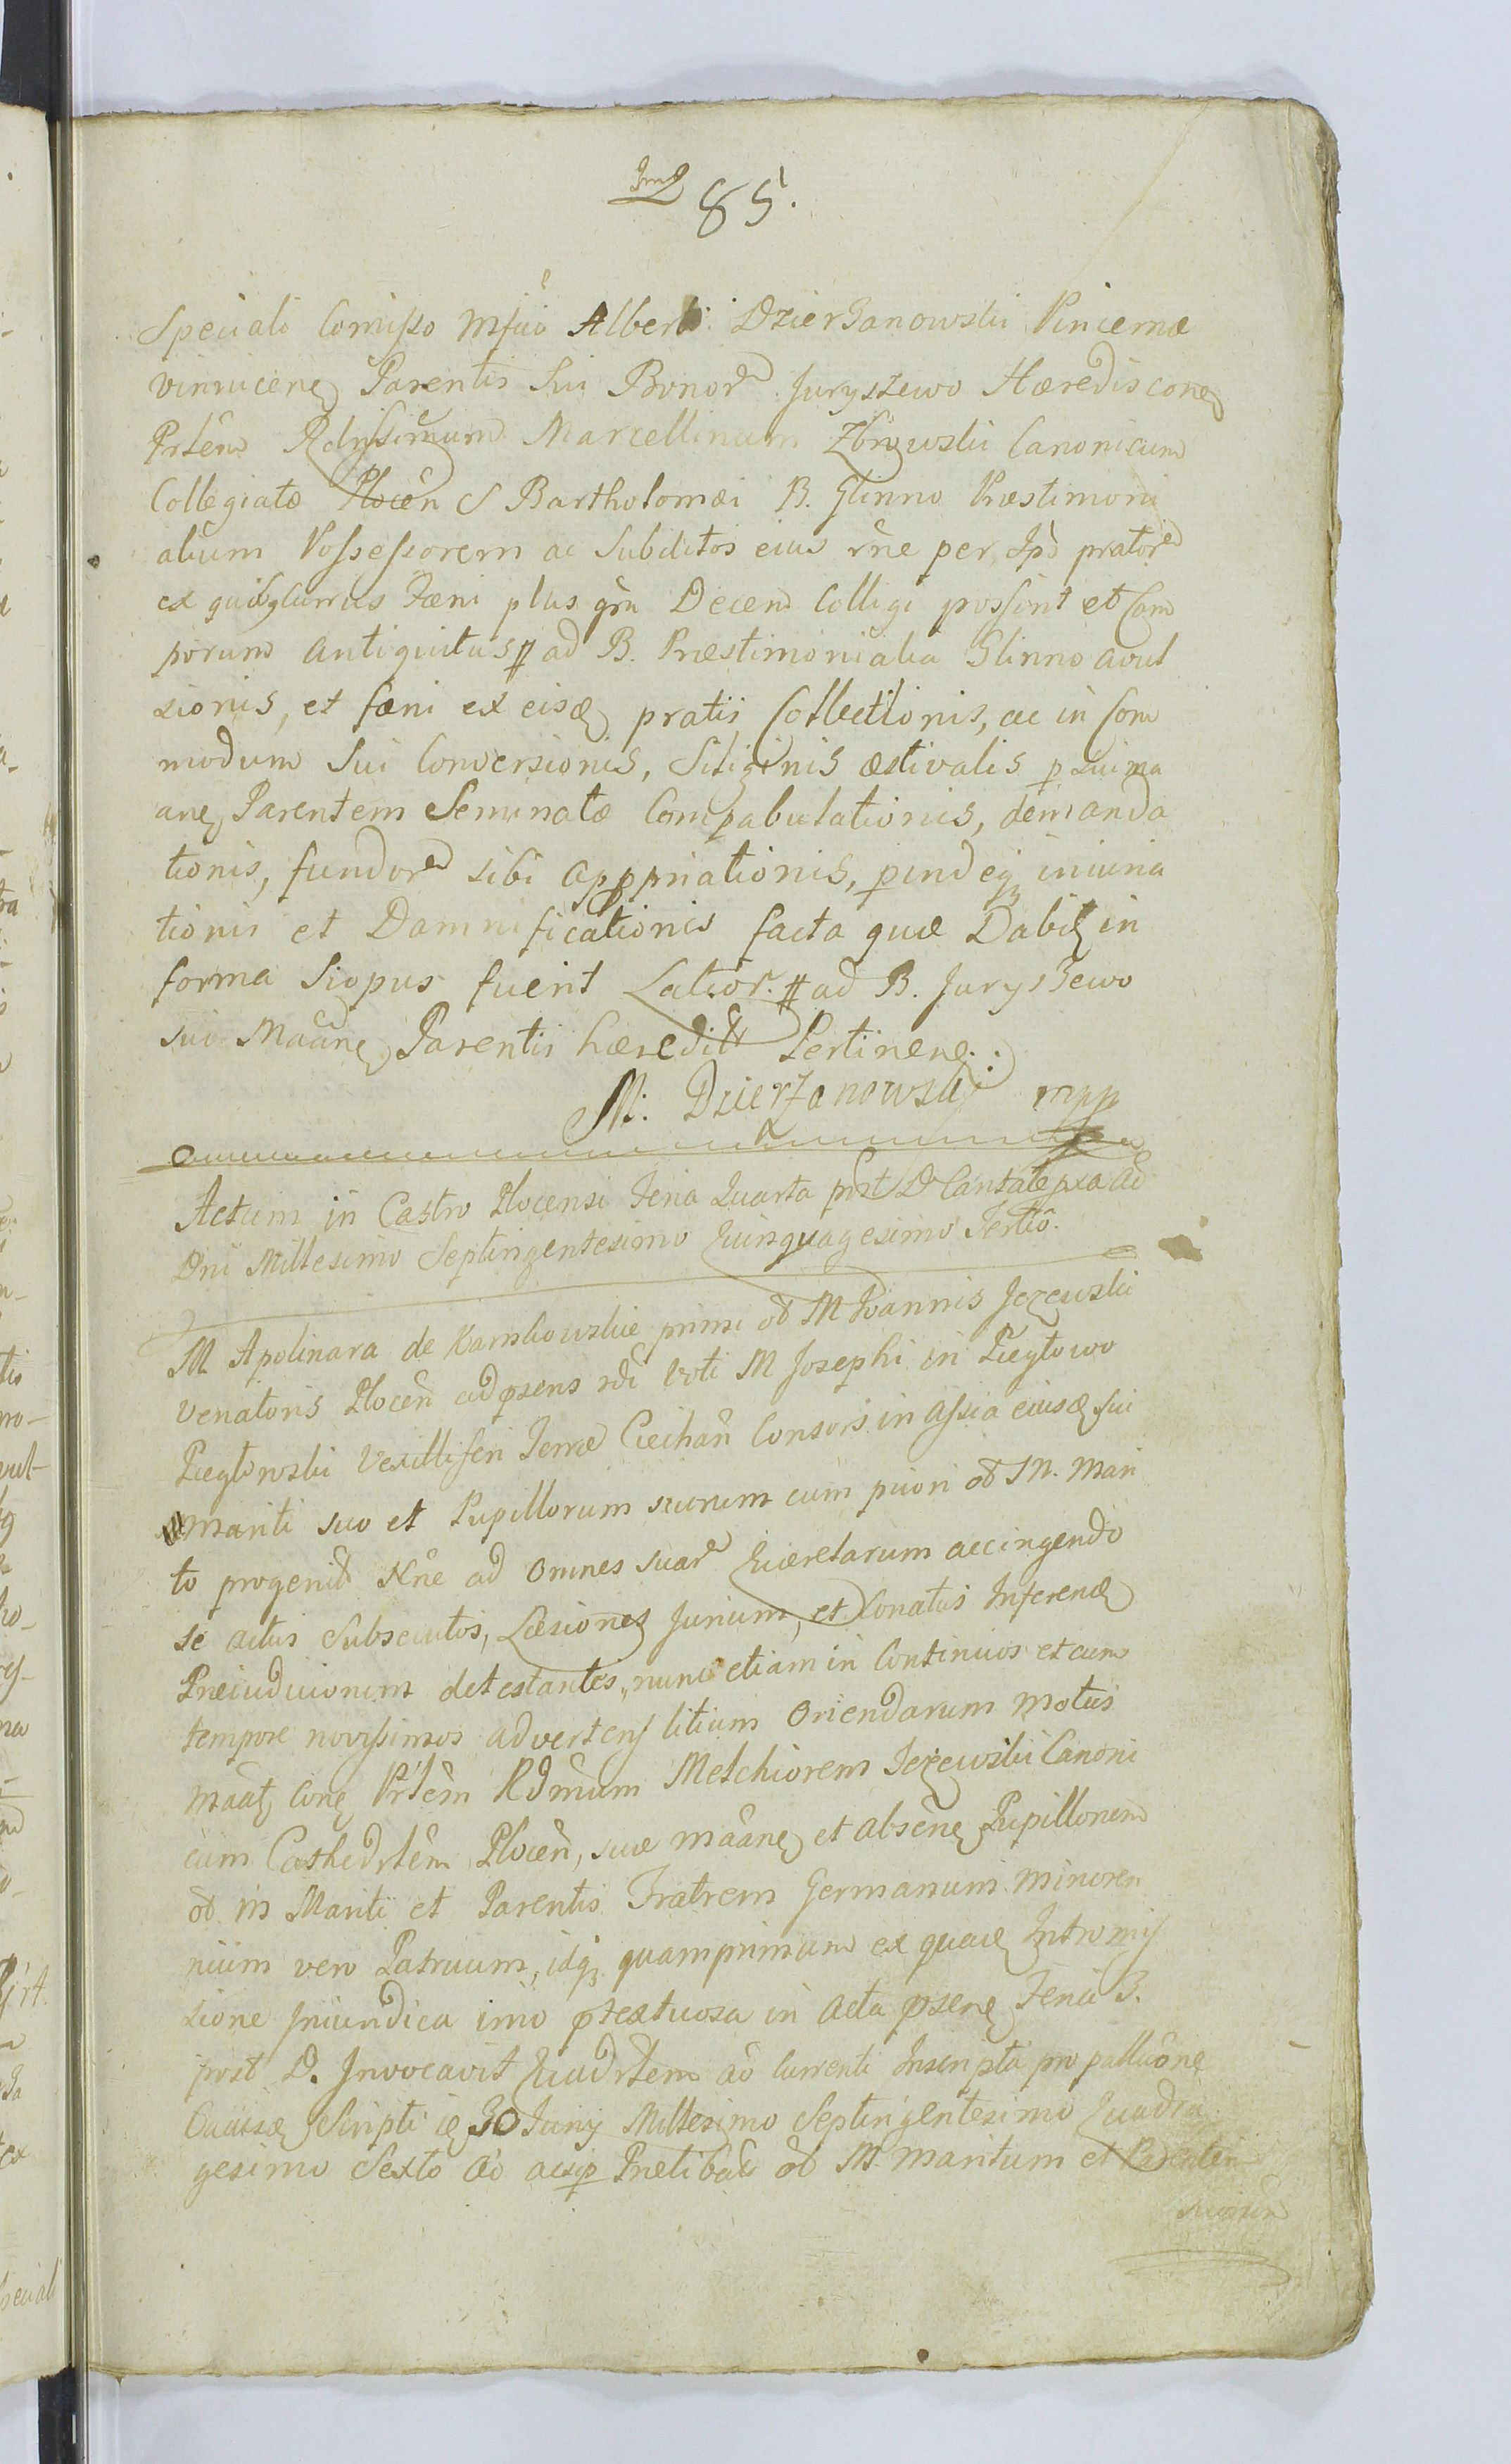 85.
Speciali Comisso Mfici Alberti Dzierzanowski Pincernæ
vinnicene Parentis Sui Bonor Juryszewo Hæredis cone
Prlem Rdissimum Marcellinum Canonicum
Collegiatæ Plocen S Bartholomæi B. Glinno Præstimoni
alium Possessorem ac Subditos eius rne per Ipo prator
ex quibg currus Fæni plus qm Decem Colligi possunt et Cam
porum antiquitus ad B. Præstimonialia Glinno avul
sionis, et fæni ex eisd pratis Collectionis, ac in Com
modum Sui Conversionis, Siliginis æstivalis p sui ma
ane Parentem Seminatæ Compabulationis, demanda
tionis, fundor sibi appriationis, pindeq iniuria
tionis et Damnificationis facta quæ Dabit in
forma si opus fuerit Latior. ad B. Juryszewo
sui Maane Parentis hæredit Pertinene.
M: Dzierzanowski mpp
Actum in Castro Plocensi Feria Quarta post D Cantate pxa ao
Dni Millesimo Septingentesimo Quinquagesimo Tertio.
M Apolinara de Karskowskie primi od M Joannis Jezewski
Venatoris Plocen ad psens 2di voti M Josephi in Pieglowo
Pieglowski Vexilliferi Terræ Ciechan Consors in assia eiusd sui
mariti suo et Pupillorum suorum cum priori od M. Mari
to progenit Nne ad omnes suar Querelarum accingendo
se actus subsecutos, Læsiones Jurium, et Conatus Inferend
Preiudiciorum detestantes, nunc etiam in Continuos et cum
tempore novissimos advertens litium Oriendarum motus
Maat cone Prlem Rdmum Melchiorem Jezewski Canoni
cum Cathedrlem Plocen, suæ maane et absene Pupillorum
od M Mariti et Parentis Fratrem Germanum minoren
nium vero Patruum, idq quamprimum ex quave Intromis
sione Iniuridica imo ptextuosa in acta psene Feria 3.
post D. Invocavit Quadrlem ao currenti Inscripta pro
Causæ Scripti 30 Junij Millesimo Septingentesimo Quadra
gesimo Sexto ao Prælibat od M Maritum et Parentem
suorum